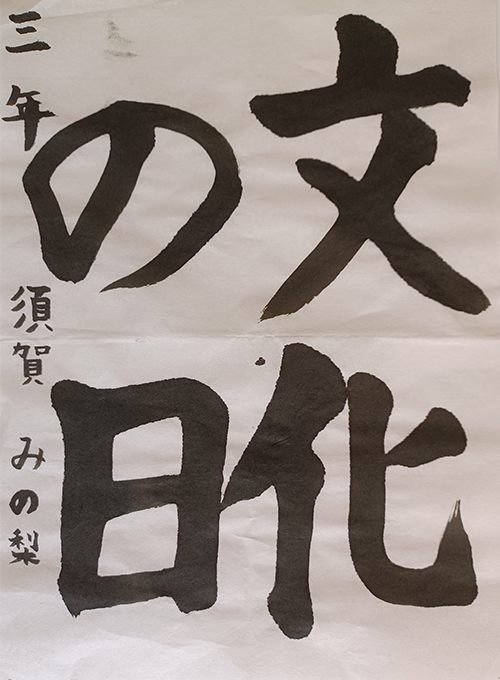 文化
の日
三年 須賀 みの梨